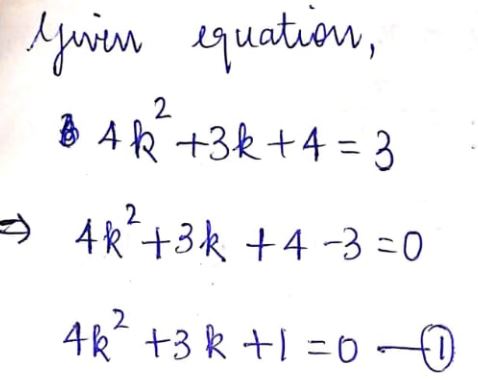 Given equation,
4k² + 3k + 4 = 3
⇒ 4k² + 3k + 4 - 3 = 0
4k² + 3k + 1 = 0 — ①